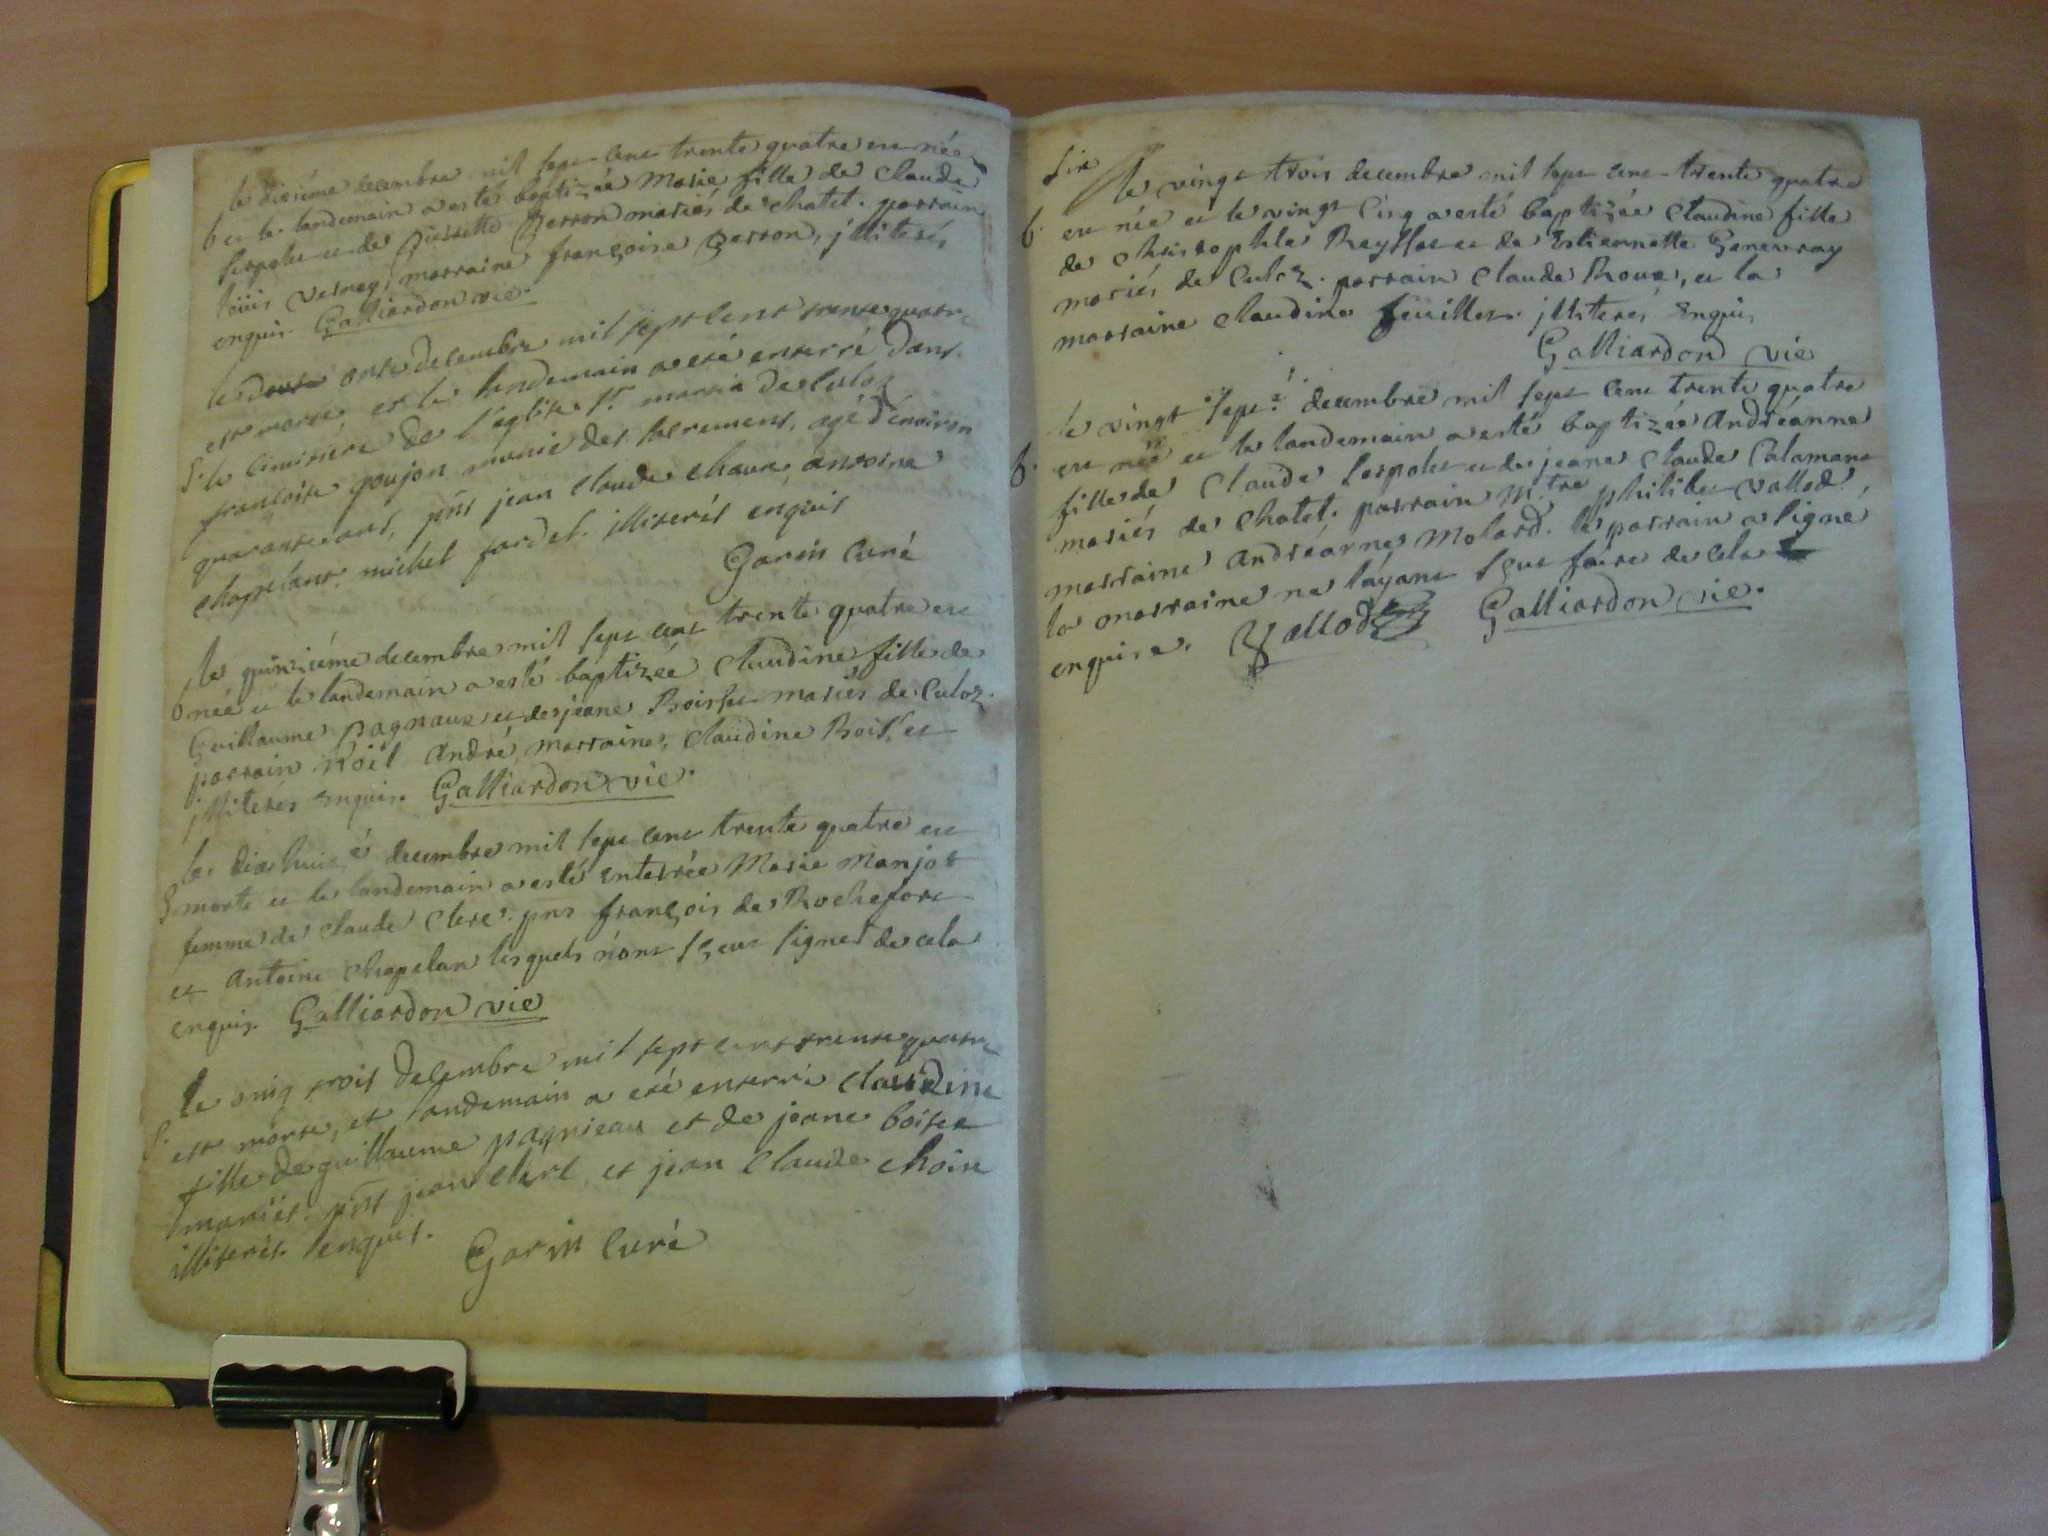 le dixiéme decembre mil sept cent trente quatre est née
b et le landemain a esté baptizée Marie fille de Claude
Serpolet et de Pierrette Perron mariés de chatel. parrain
loüis Vernay, marraine françoise perron, jlliterés
enquis. Galliardon vic.
le onze decembre mil sept cent trente quatre
est morte et le lendemain a eté enterré dans
S. le cimitiére de l'église St. martin de culoz
françoise goujon munie des sacremens, agé d'environ
quarante ans, pñs jean claude chaux antoine
chapelans. michel fardel. illiterés enquis
Garin curé
le quinziéme decembre mil sept cent trente quatre est
b née et le landemain a esté baptizée Claudine fille de
Guillaume pagnaux et de jeane Boisset mariés de Culoz.
parrain Noël André, marraine, Claudine Boisset
jlliterés enquis. Galliardon vic.
le dix huit e decembre mil sept cent trente quatre est
S morte et le landemain a esté enterrée Marie Manjot
femme de Claude Clerc. pns françois de Rochefort
et Antoine Chapelan lesquels n'ont sçeut signer de cela
enquis. Galliardon vic
le vint trois decembre mil sept cent trente quatre
S. est morte, et landemain a eté enterré claudine
fille de guillaume pagnieau et de jeane boiset
mariés. pñs jean clerc, et jean claude choin
illiterés. enquis.
Garin curé
six
le vingt trois decembre mil sept cent trente quatre
b. est née et le vingt cinq a esté baptizée Claudine fille
de Christophle Reyssat et de Estiennette Genevray
mariés de Culoz. parrain Claude Roux, et la
marraine Claudine feüillet. jlliterés enquis,
Galliardon vic
le vingt sept e decembre mil sept cent trente quatre
b. est née et le landemain a esté baptizée Andréanne
fille de Claude Serpolet et de jeane Claude Calamant
mariés de Chatel. parrain Mtre philibert vallod.
marraine Andréanne Molard. le parrain a signé
la marraine ne l'áyant sçeut faire de cela
enquise. Vallod Galliardon vic.